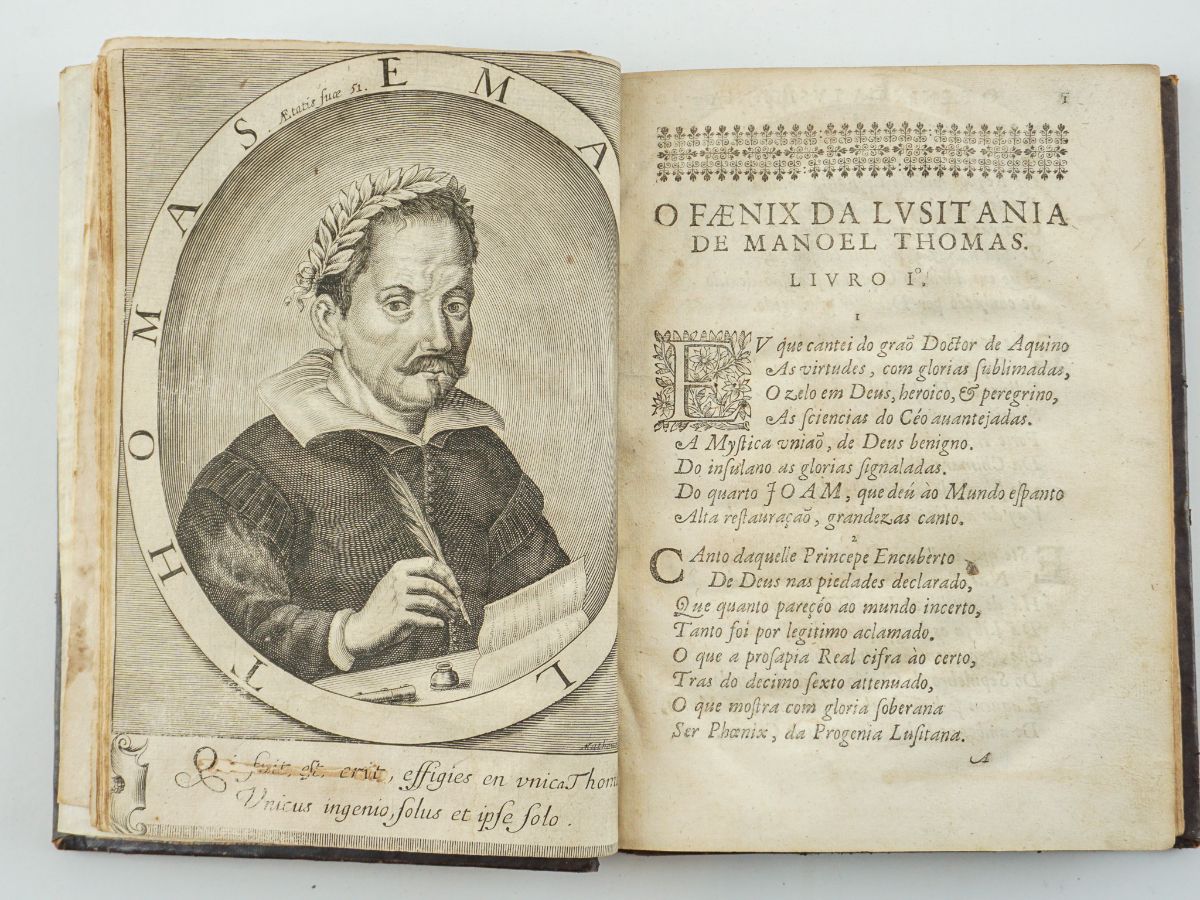 THOMAS EMA L
Ætatis suæ 51.
fuit, est, erit, effigies en vnica Thom
Vnicus ingenio, solus et ipse solo.
1
O FÆNIX DA LVSITANIA
DE MANOEL THOMAS.
LIVRO Iº.
1
EV que cantei do graõ Doctor de Aquino
As virtudes, com glorias sublimadas,
O zelo em Deus, heroico, & peregrino,
As sciencias do Céo auantejadas.
A Mystica vniaõ, de Deus benigno.
Do insulano as glorias signaladas.
Do quarto JOAM, que deú ào Mundo espanto
Alta restauraçaõ, grandezas canto.
2
CAnto daquelle Princepe Encubèrto
De Deus nas piedades declarado,
Que quanto pareçéo ao mundo incerto,
Tanto foi por legitimo aclamado.
O que a prosapia Real cifra ào certo,
Tras do decimo sexto attenuado,
O que mostra com gloria soberana
Ser Phœnix, da Progenia Lusitana.
A